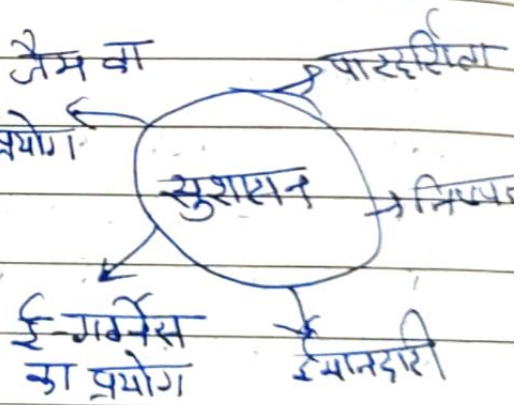 जैम का
प्रयोग
पारदर्शिता
सुशासन
ई-गवर्नेंस
का प्रयोग
ईमानदारी